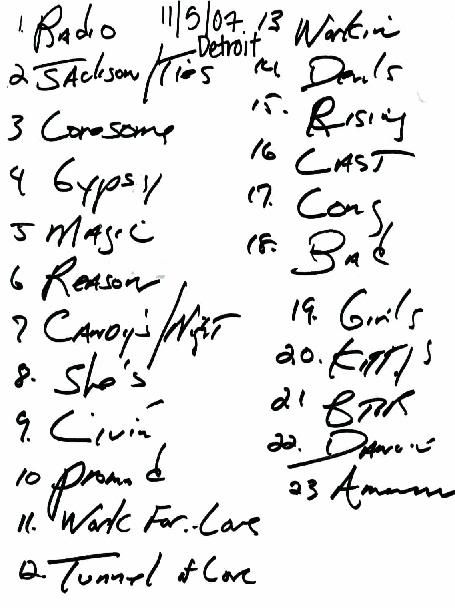 11/5/07
Detroit
1. Radio
2 Jackson/Ties
3 Lonesome
4 Gypsy
5 Magic
6 Reason
7 Candy's/Night
8. She's
9. Livin'
10 Prom'd
11. Work For.. Love
12. Tunnel of Love
13 Workin
14. Devils
15. Rising
16 LAST
17. Long
18. Bad
19. Girls
20. Kitty's
21 BTR
22. Dancin
23 Amer